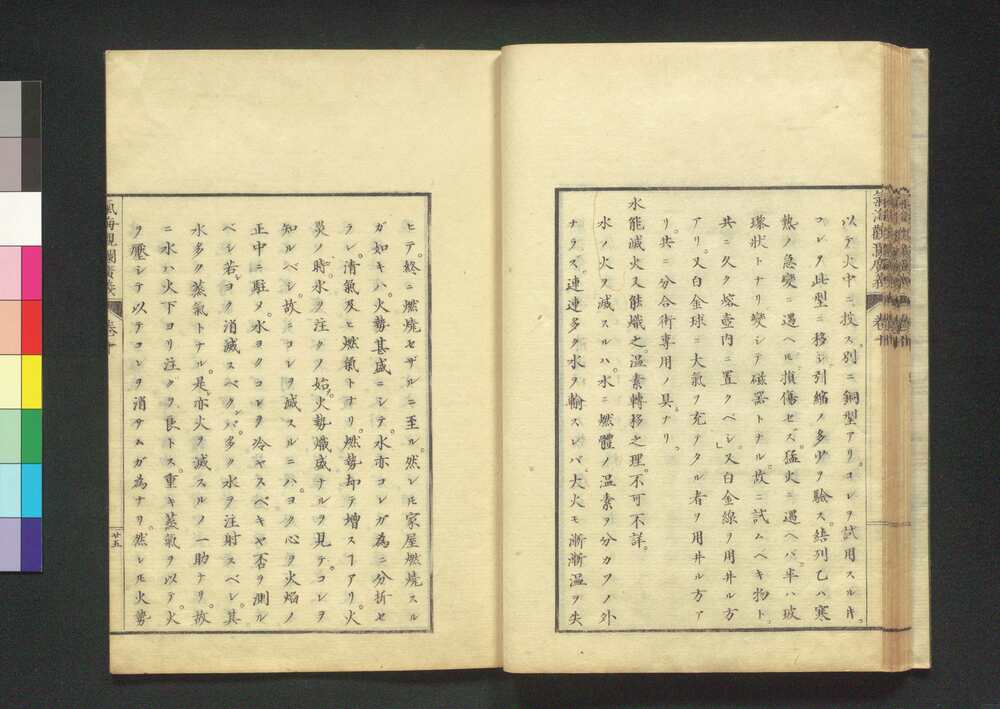 氣海觀瀾廣義 卷十
以テ火中ニ投ス。別ニ銅型アリ。コレヲ試用スル𪜈。
コレヲ此型ニ移シ、引縮ノ多少ヲ驗ス。結列乙ハ寒
熱ノ急變ニ遇ヘ𪜈。損傷セズ。猛火ニ遇ヘバ。半ハ玻
璨狀トナリ變シテ磁器トナル。故ニ試ムベキ物ト
共ニ久ク熔壺內ニ置クベシ又白金線ヲ用井ル方
アリ。又白金球ニ大氣ヲ充テタル者ヲ用井ル方ア
リ。共ニ分合術專用ノ具ナリ
水能滅火又能熾之。溫素轉移之理。不可不詳。
水ノ火ヲ滅スルハ。水ニ燃體ノ溫素ヲ分カツノ外
ナラズ。連連多ク水ヲ輸スレバ。大火モ漸漸溫ヲ失
ヒテ。終ニ燃燒セザルニ至ル。然レ𪜈家屋燃燒スル
ガ如キハ。火勢甚盛ニシテ。水亦コレガ為ニ分析セ
ラレ。清氣及ヒ燃氣トナリ。燃勢却テ增スヿアリ。火
災ノ時。水ヲ注クノ始。火勢熾盛ナルヲ見テ。コレヲ
知ルベシ。故ニコレヲ滅スルニハ。ヨク心ヲ火焰ノ
正中ニ駐メ。水ヨクコレヲ冷ヤスベキヤ否ヲ測ル
ベシ。若シヨク消滅スベクバ。多ク水ヲ注射スベシ。其
水多ク蒸氣トナル。是亦火ヲ滅スルノ一助ナリ。故
ニ水ハ火下ヨリ注グヲ良トス。重キ蒸氣ヲ以テ。火
ヲ壓シテ以テコレヲ消サムガ為ナリ。然レ𪜈火勢
氣海觀瀾廣義 卷十
廿五